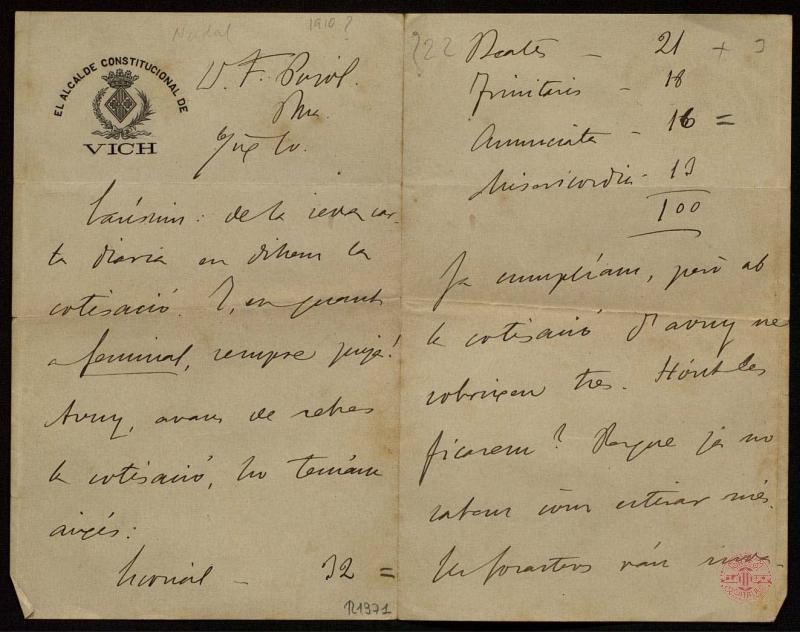 Nadal 1910?
EL ALCALDE CONSTITUCIONAL DE
VICH
D. F. Pujol.
Caríssim: de la seva car-
ta diaria en dihem la
cotisació. I, en quant
a feminal, sempre puja!
Avuy, avans de rebre
la cotisació, ho teníam
aixís:
Escorial - 32 =
R1371
222 Beates - 21 + 3
Trinitaris - 18
Anunciata - 16 =
Misericordia - 13
100
Ja cumplíam, però ab
la cotisació d'avuy ne
sobrixen tres. Hónt les
ficarem? Perque ja no
sabem cóm estirar més.
Els forasters ván inva-